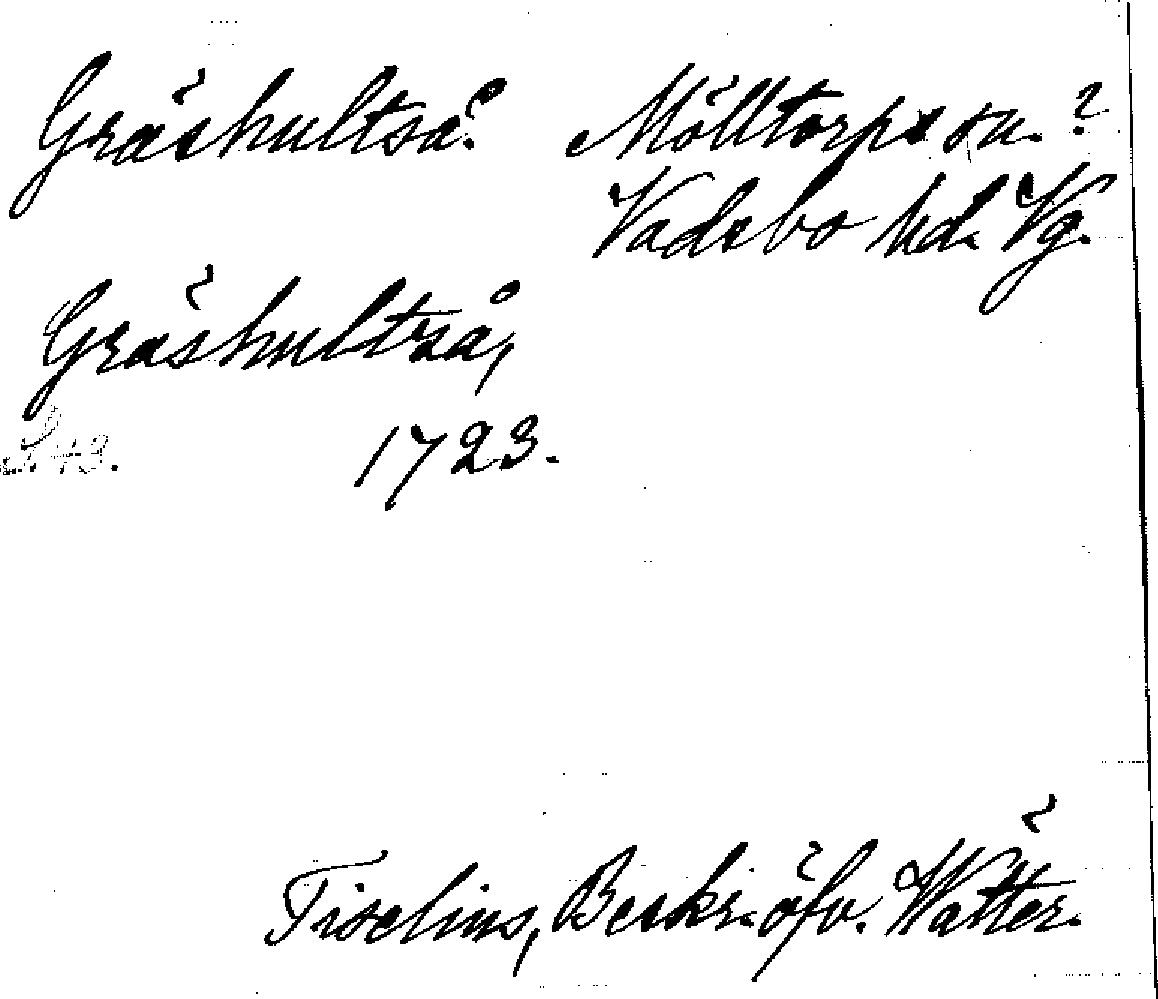 Gräshultså? Mölltorps sn. ?
Vadsbo hd. Vg.
Gräshultså,
S. 43. 1723.
Tiselius, Beskr. öfv. Wätter.